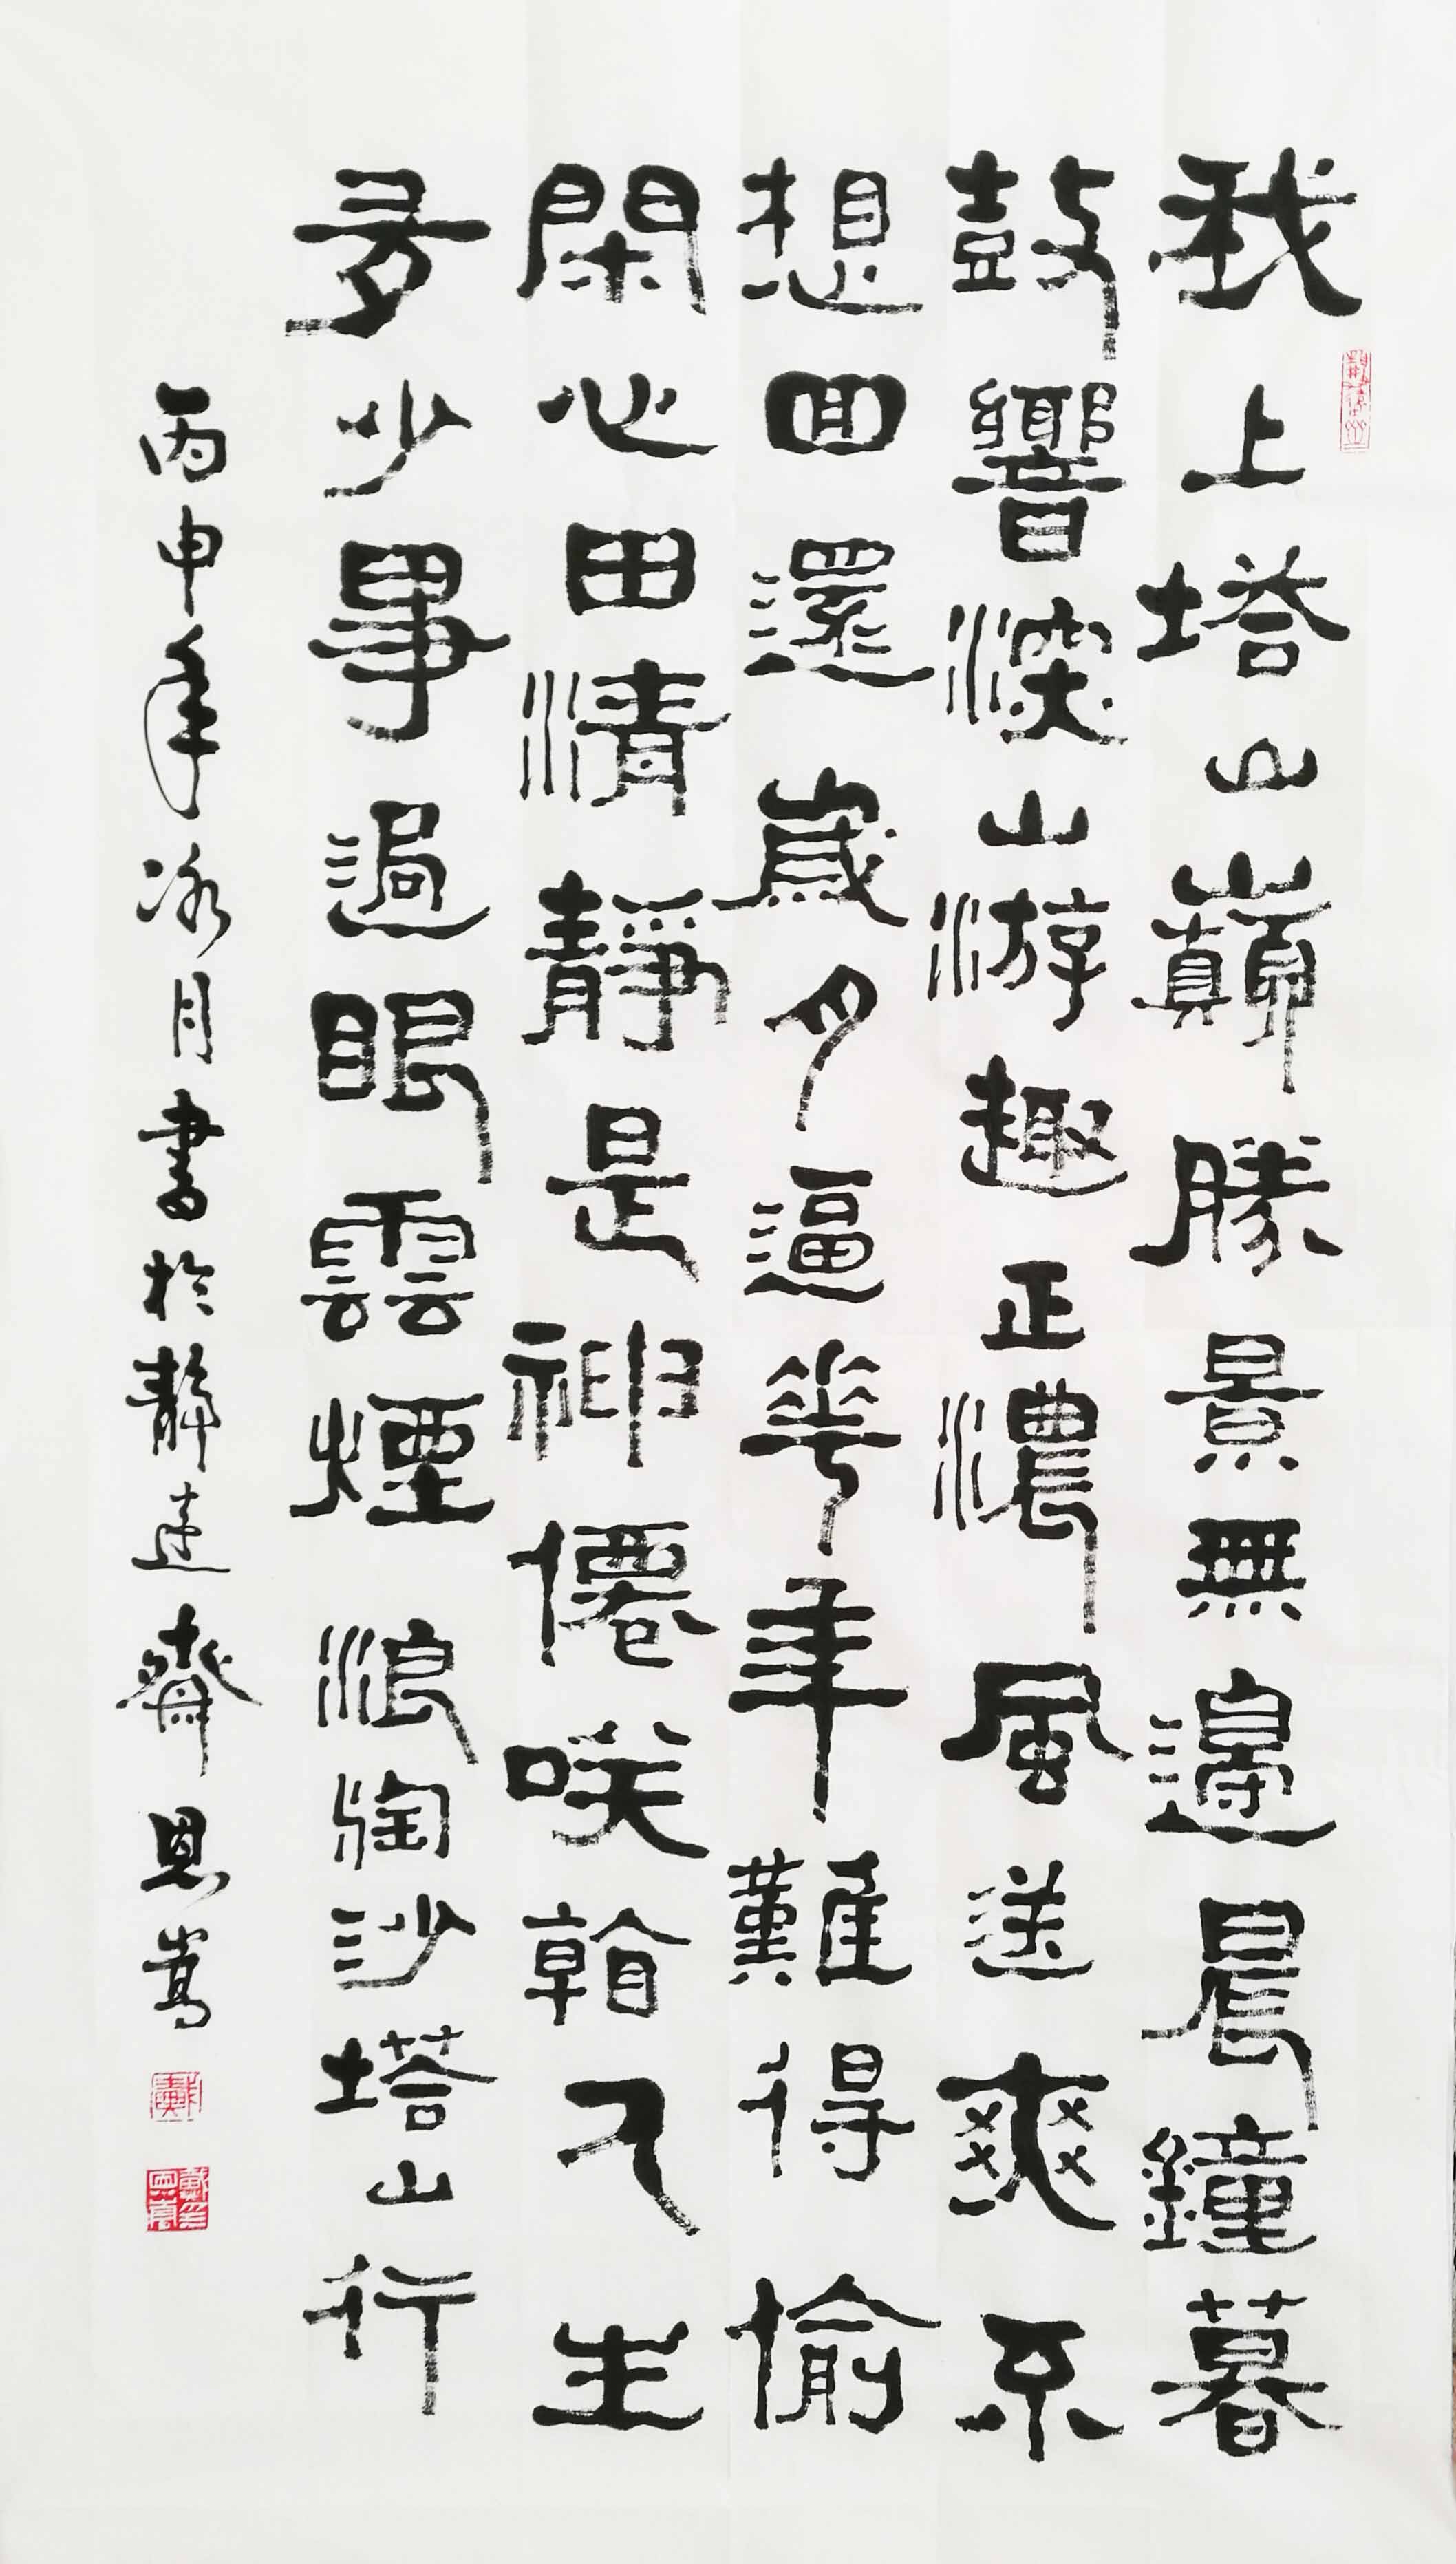 我上塔山巔勝景無邊晨鐘暮
鼓響深山游趣正濃風送爽不
想回還歲月逼華年難得愉
閑心田清靜是神僊咲翰人生
多少事過眼雲煙 浪淘沙塔山行
丙申年冰月書於靜遠齋恩嵩